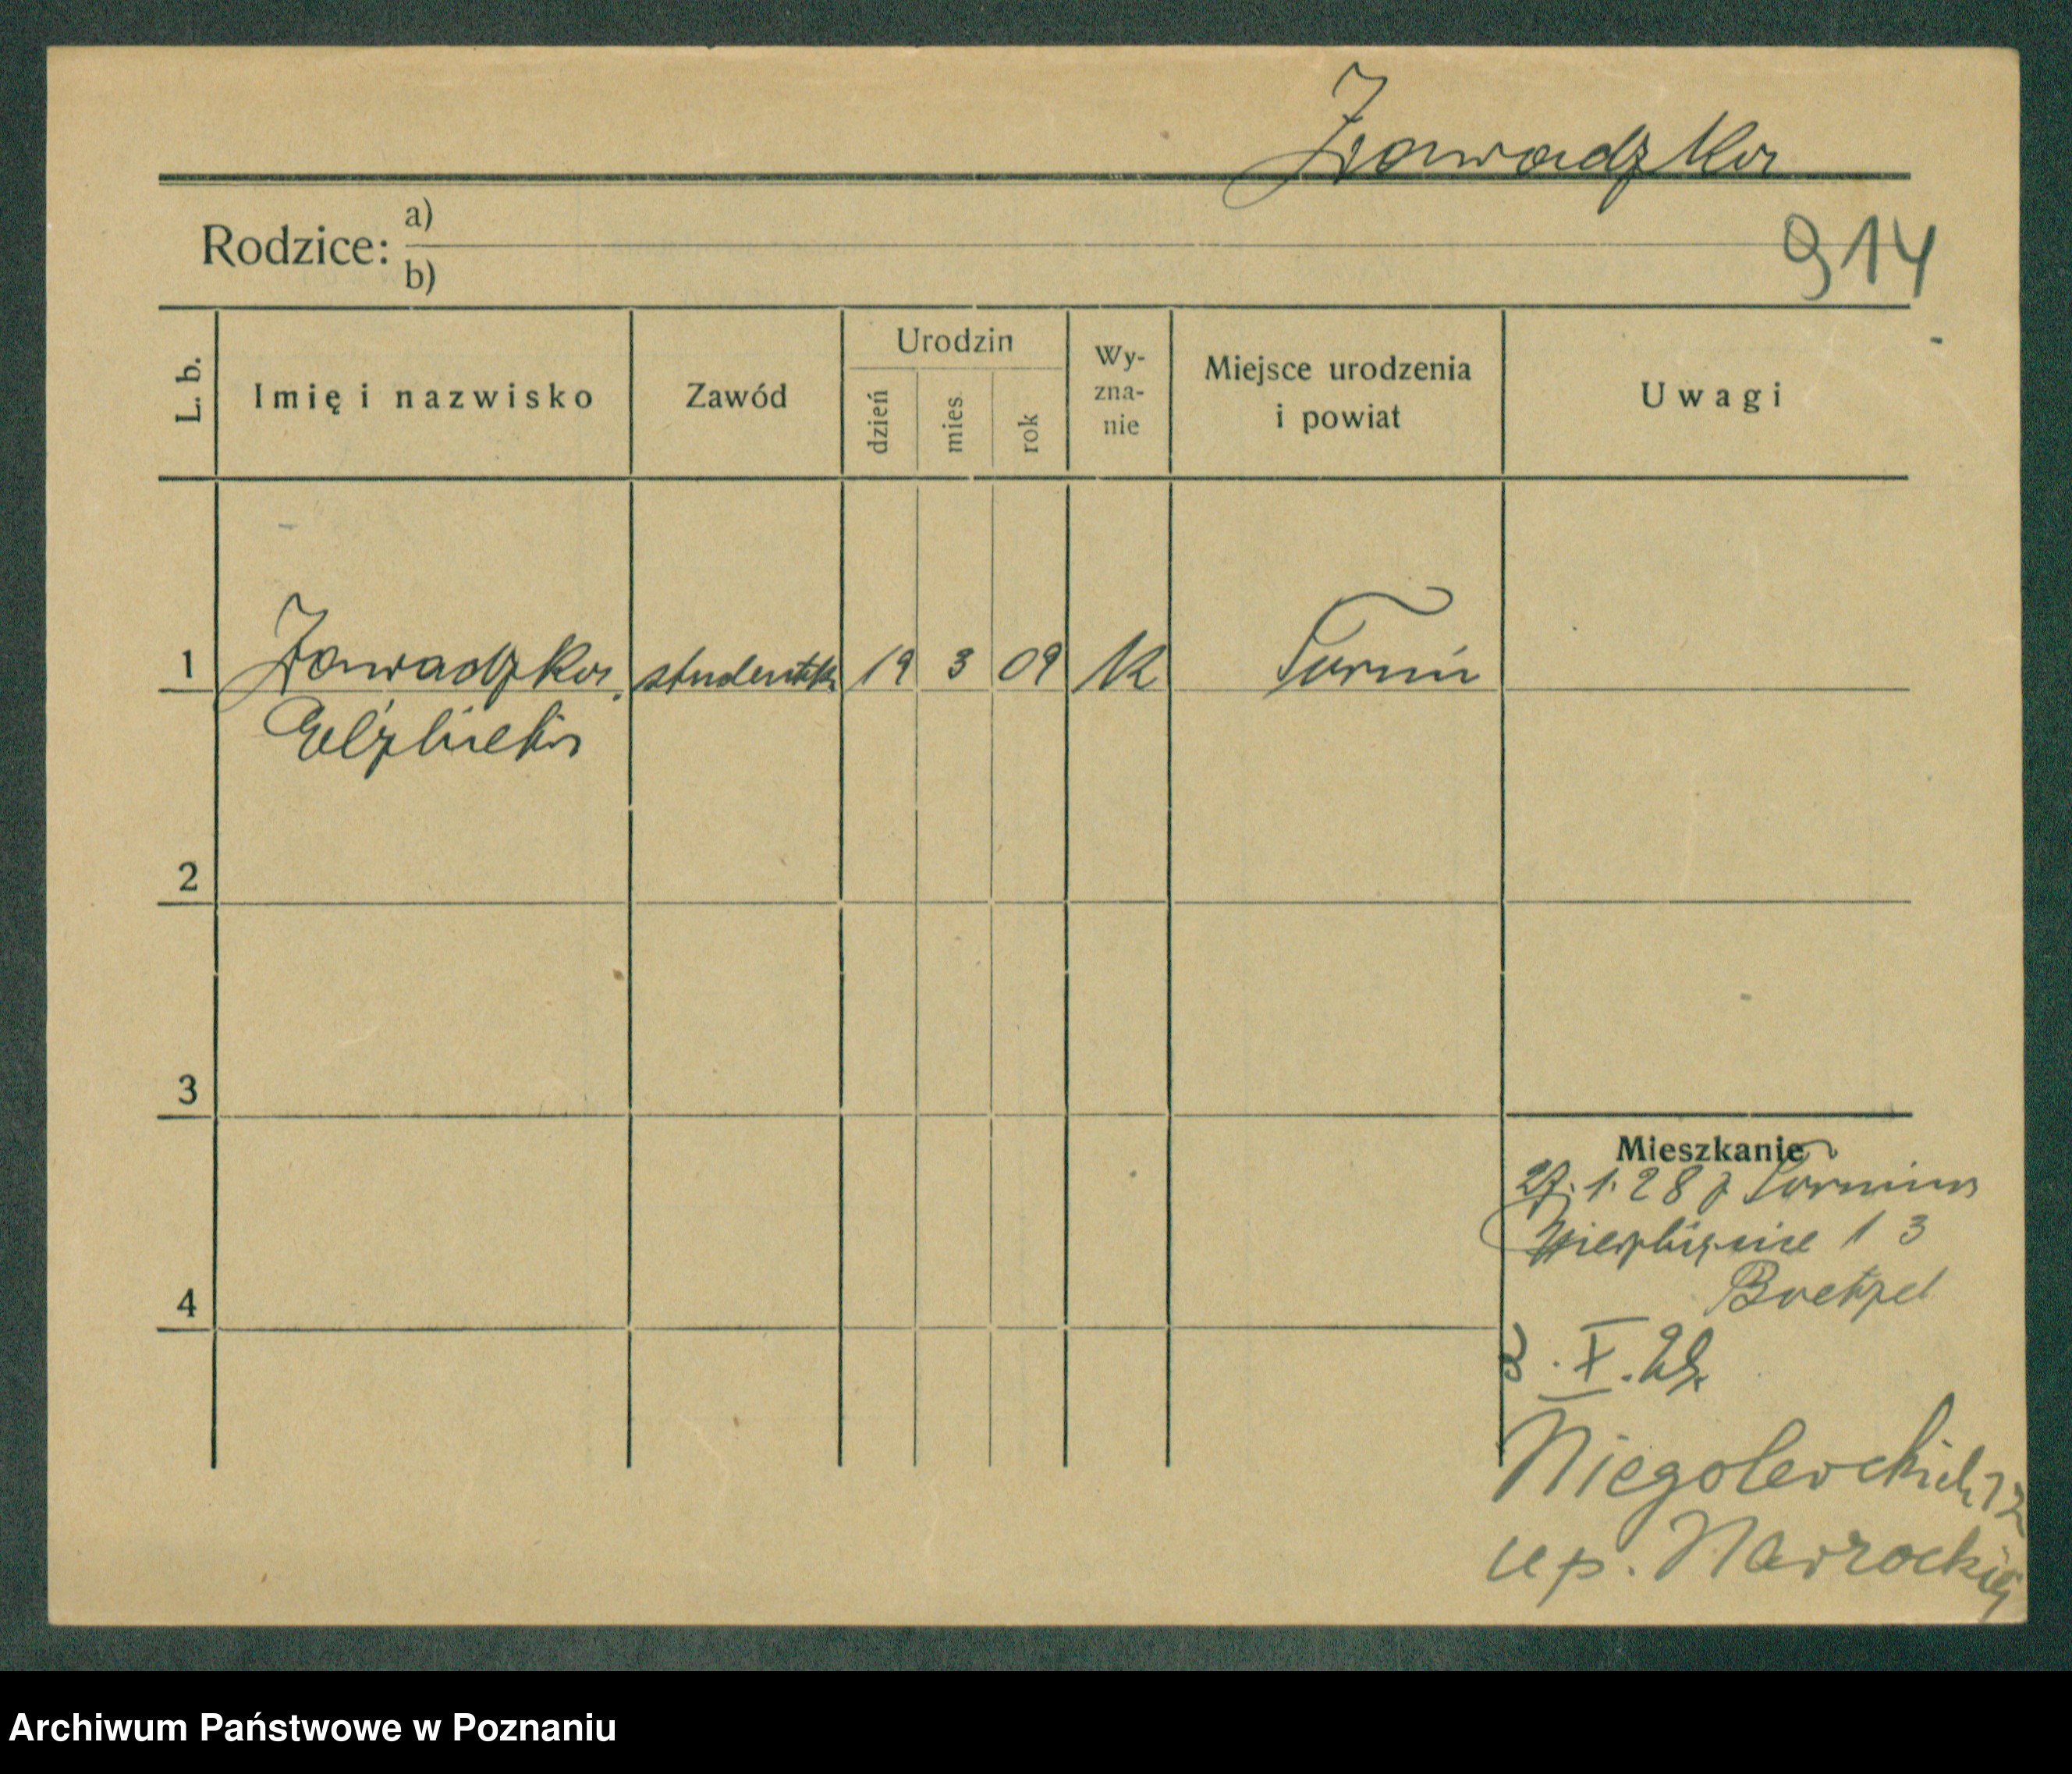 Zawadzka
Rodzice: a)
b)
914
L. b.
Imię i nazwisko
Zawód
Urodzin
dzień
mies.
rok
Wy-
zna-
nie
Miejsce urodzenia
i powiat
Uwagi
1 Zawadzka studentka 19 3 09 K Toruń
Elżbieta
2
3
4
Mieszkanie
27. 1. 28 z Torunia
Wierzbięcice 13
Boetzel
2. X. 28.
Niegolewskich 12
u p. Nawrockiej
Archiwum Państwowe w Poznaniu